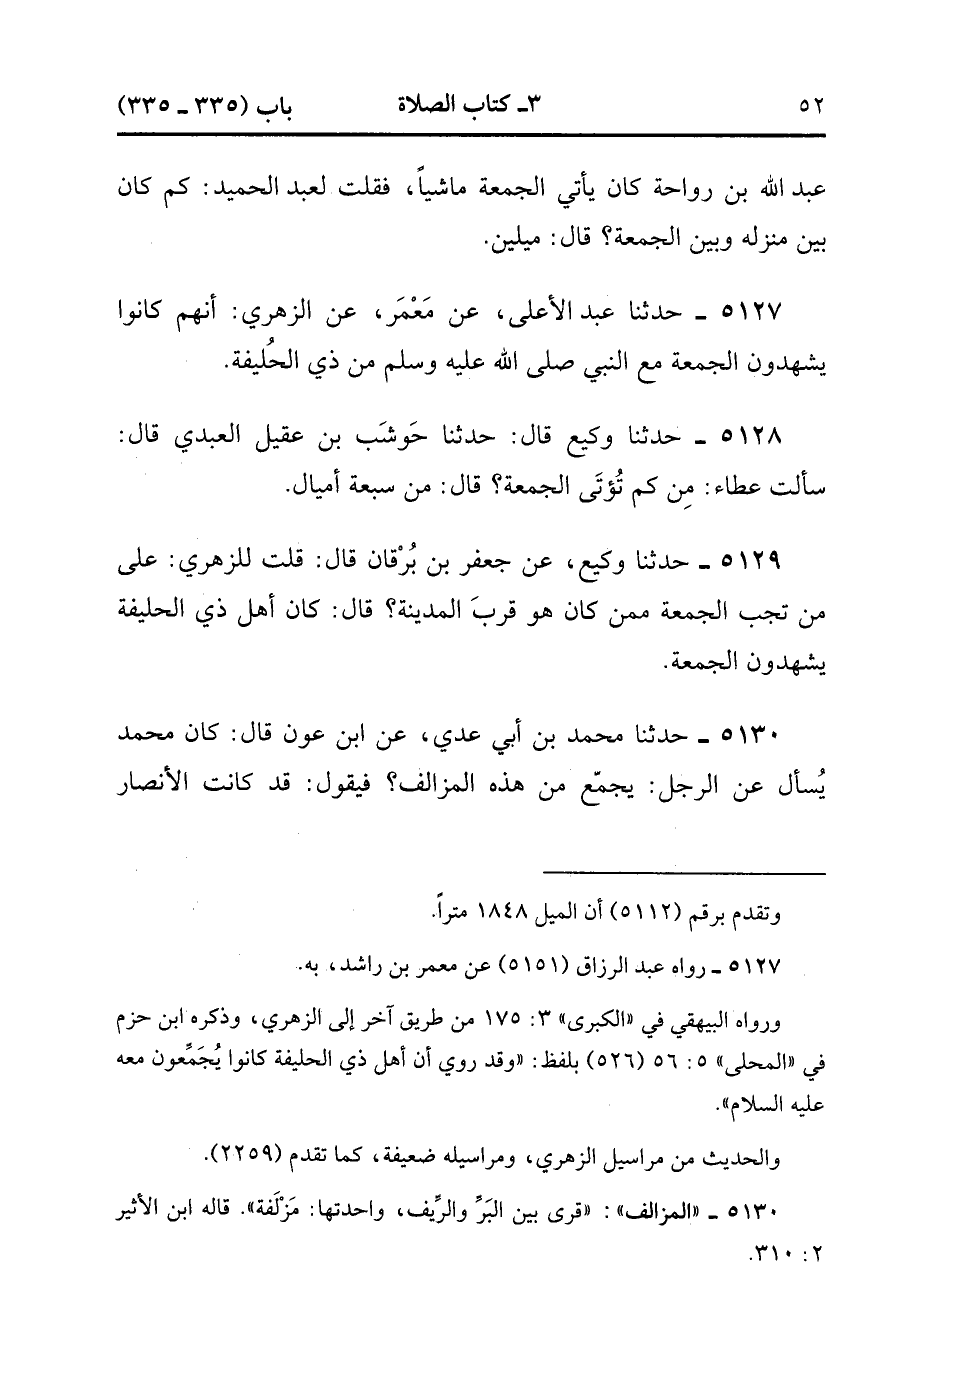 ٥٢ ٣ـ كتاب الصلاة باب (٣٣٥ ـ ٣٣٥)
عبد الله بن رواحة كان يأتي الجمعة ماشياً، فقلت لعبد الحميد: كم كان
بين منزله وبين الجمعة؟ قال: ميلين.
٥١٢٧ ـ حدثنا عبد الأعلى، عن مَعْمَر، عن الزهري: أنهم كانوا
يشهدون الجمعة مع النبي صلى الله عليه وسلم من ذي الحُليفة.
٥١٢٨ ـ حدثنا وكيع قال: حدثنا حَوشَب بن عقيل العبدي قال:
سألت عطاء: مِن كم تُؤتَى الجمعة؟ قال: من سبعة أميال.
٥١٢٩ ـ حدثنا وكيع، عن جعفر بن بُرْقان قال: قلت للزهري: على
من تجب الجمعة ممن كان هو قربَ المدينة؟ قال: كان أهل ذي الحليفة
يشهدون الجمعة.
٥١٣٠ ـ حدثنا محمد بن أبي عدي، عن ابن عون قال: كان محمد
يُسأل عن الرجل: يجمّع من هذه المزالف؟ فيقول: قد كانت الأنصار
وتقدم برقم (٥١١٢) أن الميل ١٨٤٨ متراً.
٥١٢٧ ـ رواه عبد الرزاق (٥١٥١) عن معمر بن راشد، به.
ورواه البيهقي في «الكبرى» ٣: ١٧٥ من طريق آخر إلى الزهري، وذكره ابن حزم
في «المحلى» ٥: ٥٦ (٥٢٦) بلفظ: «وقد روي أن أهل ذي الحليفة كانوا يُجَمِّعون معه
عليه السلام».
والحديث من مراسيل الزهري، ومراسيله ضعيفة، كما تقدم (٢٢٥٩).
٥١٣٠ ـ «المزالف»: «قرى بين البَرِّ والرِّيف، واحدتها: مَزْلَفة». قاله ابن الأثير
٢: ٣١٠.